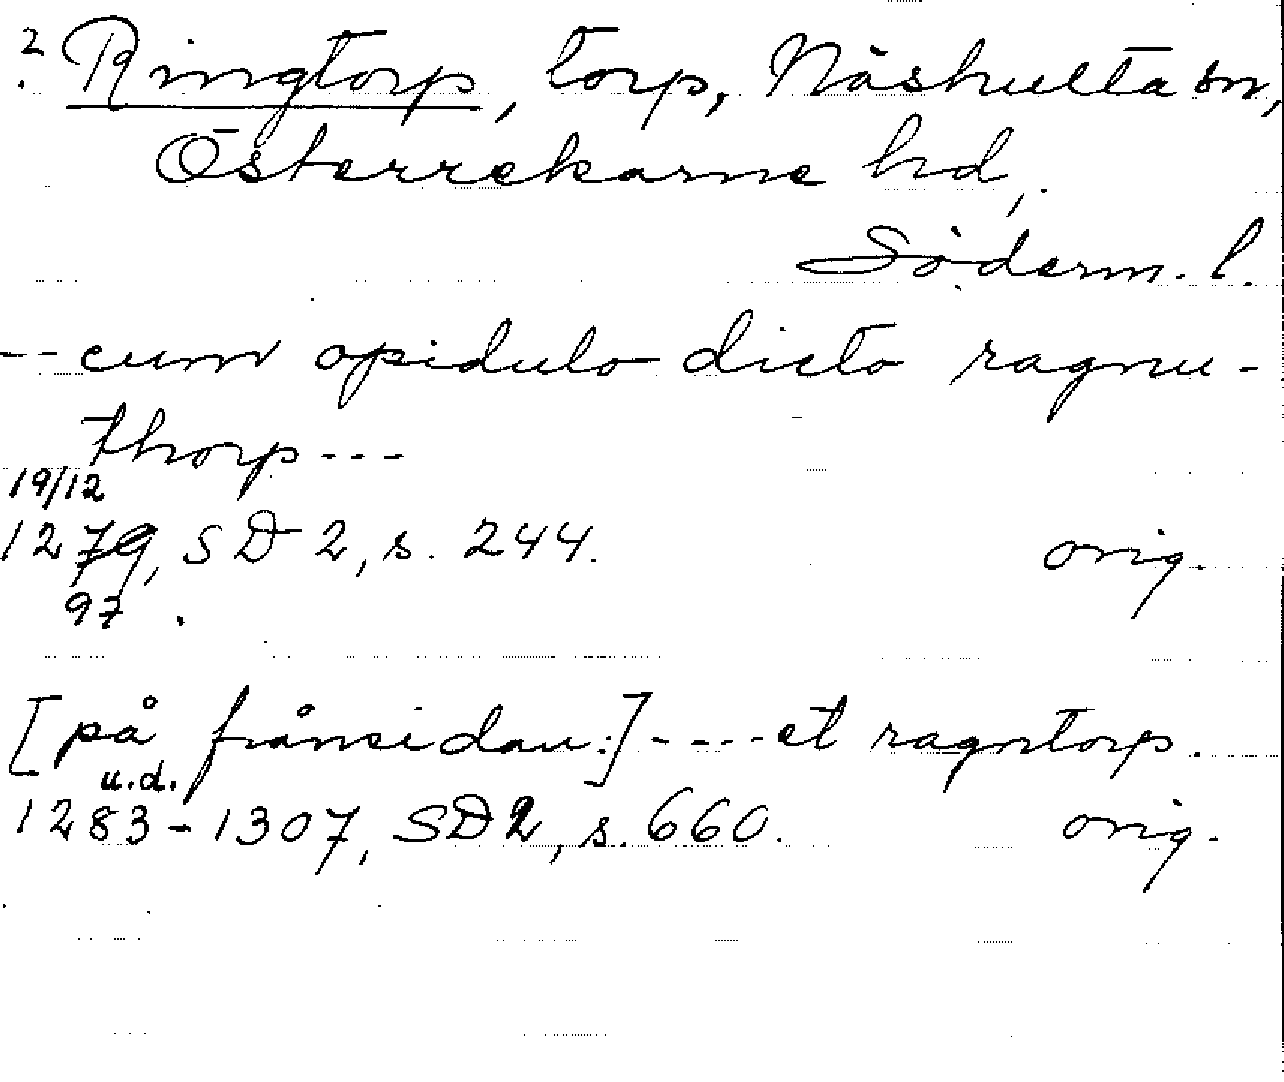 ? Ringtorp, torp, Näshulta sn,
Österrekarne hd,
Söderm. l.
-- cum opidulo dicto ragnu-
thorp ---
19/12
1279, SD 2, s. 244. orig.
97
[på frånsidan:] ---- et ragntorp.
u.d.
1283-1307, SD 2, s. 660. orig.